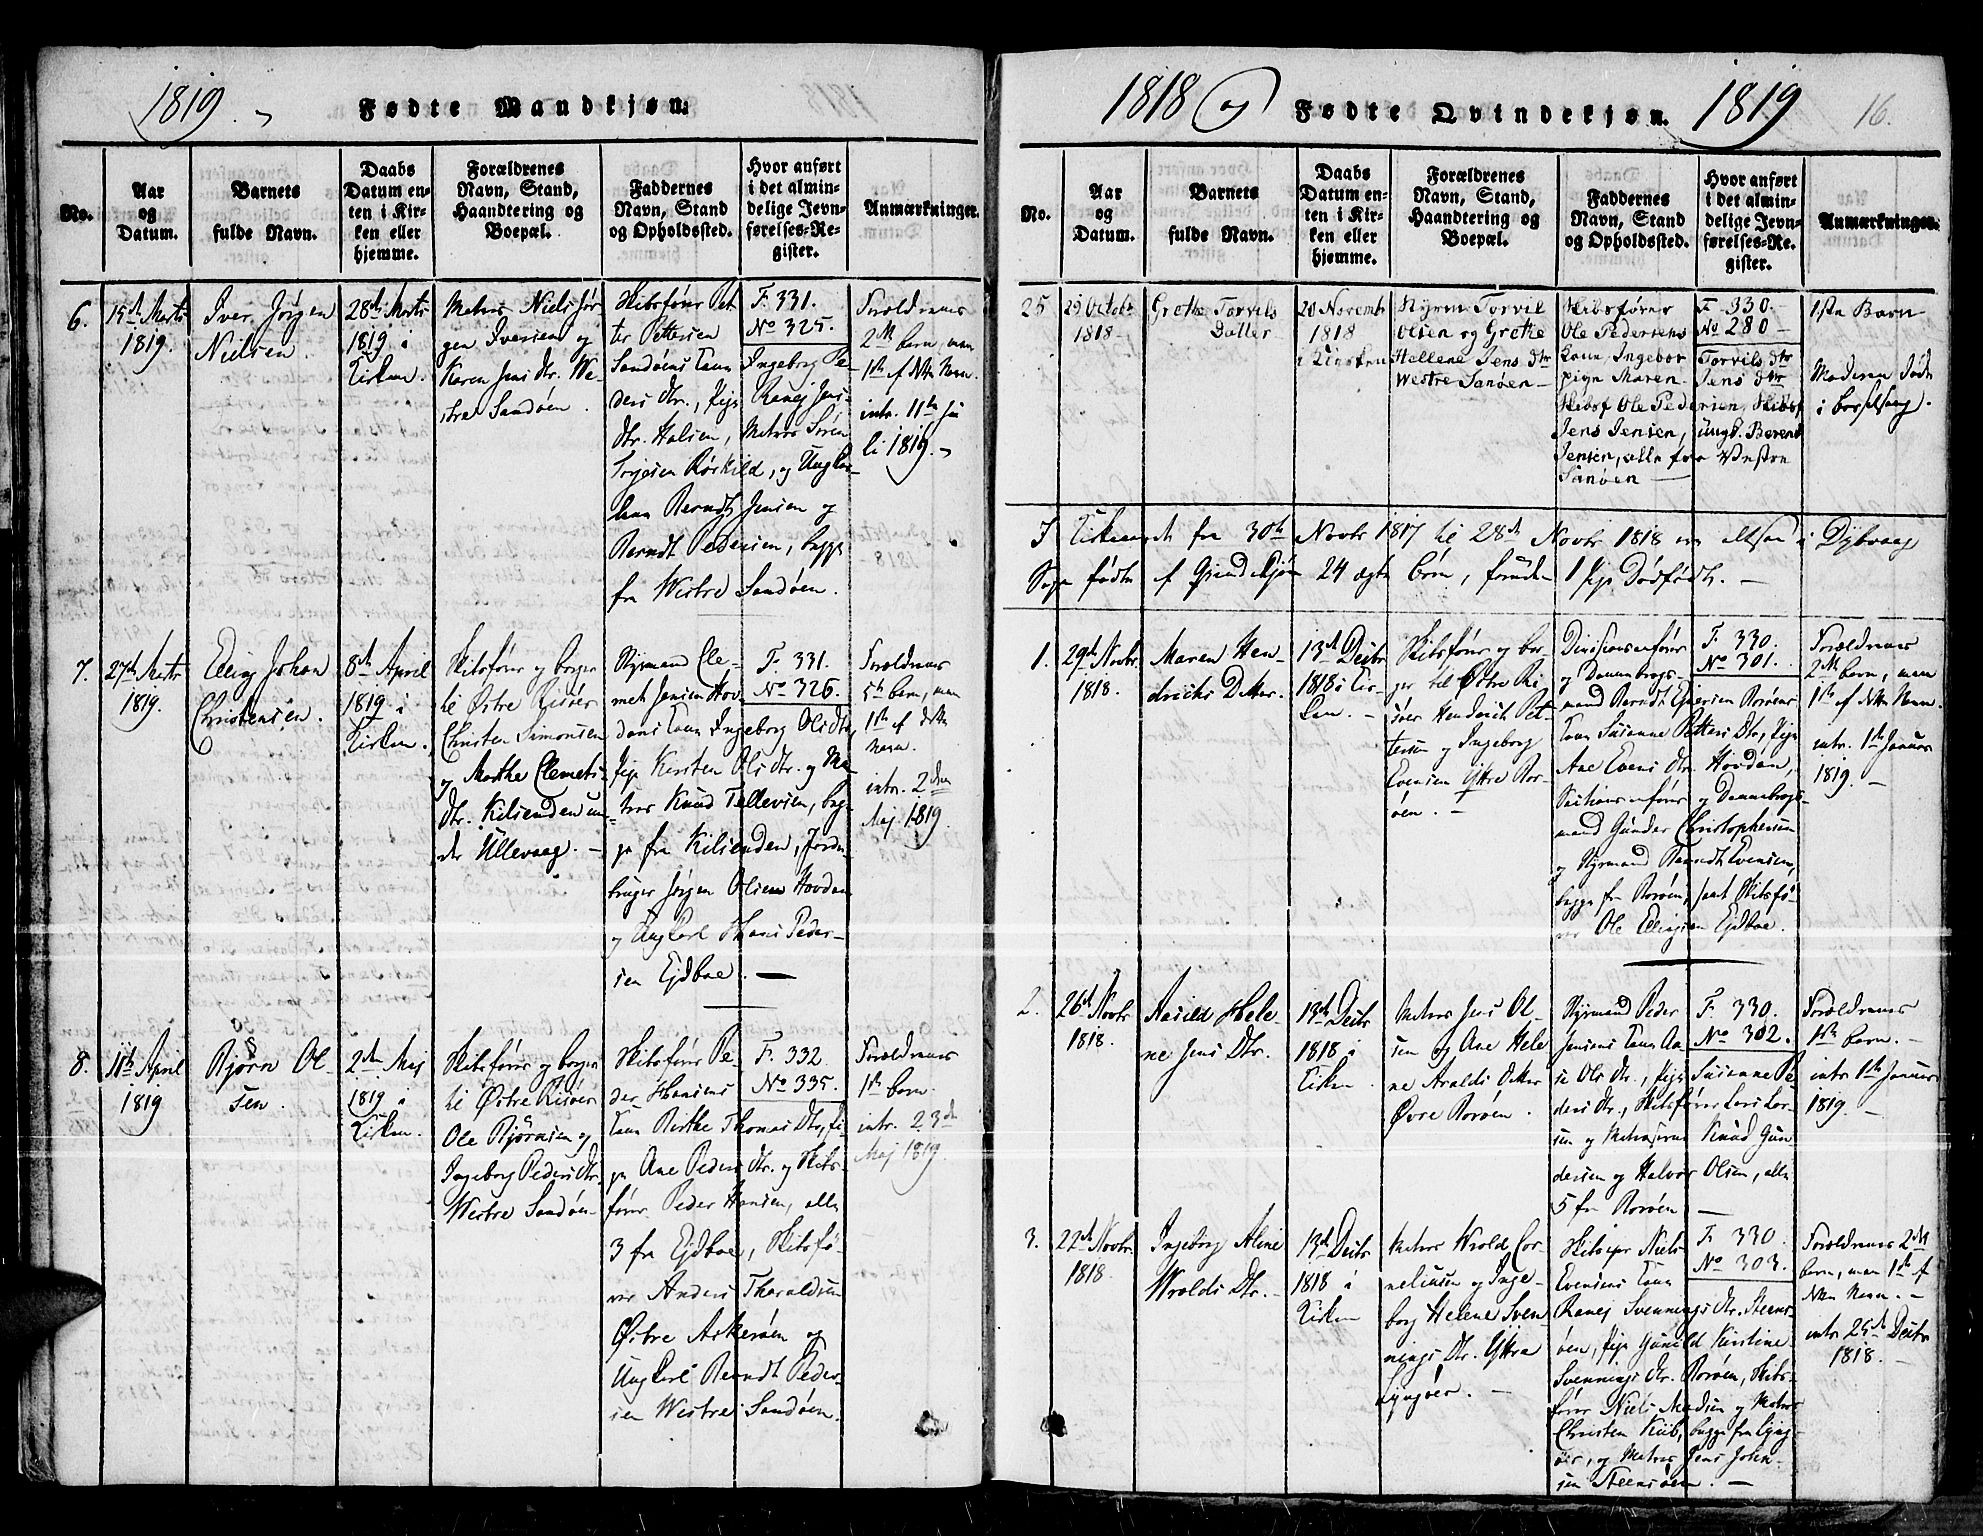 1819.
Fødte Mandkjøn.
No.
Aar
og
Datum.
Barnets
fulde Navn.
Daabs
Datum en-
ten i Kir-
ken eller
hjemme.
Forældrenes
Navn, Stand,
Haandtering og
Boepæl.
Faddernes
Navn, Stand
og Opholdssted.
Hvor anført
i det almin-
delige Jevn-
førelses-Re-
gister.
Anmærkninger.
6.
15de Marts
1819.
Iver Jørgen
Nielsen.
28de Marts
1819 i
Kirken.
Matros Niels Jør-
gen Iversen og
Karen Jens Dtr. We-
stre Sandøen.
Skibsfører Pet-
ter Pettersen
Sandøens Kone
Ingeborg Pe-
ders Dtr., Pige
Raney Jens
Dtr. Halsen, Matros Søren
Røskild, og Ungkar-
Berndt Jensen og
Berndt Pedersen, begge
fra Westre Sandøen.
F. 331.
No 325.
Forældrenes
2det barn, men
1ste af dette Navn.
intr. 11te Ju
li 1819.
7.
27de Marts
1819.
Ellig Johan
Christensen.
8de April
1819 i
Kirken.
Skibsfører og borger
til Østre Risøer
Christen Simonsen
og Marthe Clemets
Dtr. Kilsenden un-
der Ullevaag.
Styrmand Cle-
met Jensen Hov-
dens Kone Ingeborg Ols Dtr.
Pige Kirsten Ols Dtr. og Ma-
tros Knud Tellevsen, beg-
ge fra Kilsenden, Jord-
bruger Jørgen Olsen Hovden
og Ungkarl Hans Peder-
sen Ejdboe.
F. 331.
No 326.
Forældrenes
5te barn, men
1ste af dette
Navn.
intr. 2den
Maj 1819.
8.
11te April
1819
Bjørn Ol-
sen.
2den Maj
1819 i
Kirken.
Skibsfører og borger
til Østre Risøer
Ole Bjørnsen og
Ingeborg Peders Dtr.
Westre Sandøen
Skibsfører Pe-
der Hansens
Kone Birthe Thomas Dtr., Pi-
ge Ane Peders Dtr. og Skibs-
fører Peder Hansen, alle
3 fra Ejdboe, Skibsfø-
rer Anders Tharaldsen
Østre Askerøen og
Ungkarl Berndt Peder-
sen Westre Sandøen.
F. 332
No 335.
Forældrenes
1ste barn.
intr. 23de
Maj 1819.
1818 og
Fødte Qvindekjøn.
1819
16.
No.
Aar
og
Datum.
Barnets
fulde Navn.
Daabs
Datum en-
ten i Kir-
ken eller
hjemme.
Forældrenes
Navn, Stand,
Haandtering og
Boepæl.
Faddernes
Navn, Stand
og Opholdssted.
Hvor anført
i det almin-
delige Jevn-
førelses-Re-
gister.
Anmærkninger.
25
29 Octobr
1818
Grethe Torvils
Datter
20 Novembr
1818
i Kirken
Styrm Torvil
Olsen og Grethe
Hellene Jens Dtr
Westre Sanøen
Skibsfører
Ole Pedersens
Kone Ingebor
Torvils Dtr
pigen Maren
Jens Dtr
Skibsf Ole Pedersen, Skibsf
Jens Jensen, ungd. Berent
Jensen, alle fra Vestre
Sanøen
F 330
No 280
1ste Barn
Moderen døde
i barselseng.
I Kirkeaaret fra 30te Novbr 1817 til 28de Novbr 1818 ere altsaa i Dybvaag
Sogn fødte af Qvindekjøn 24 ægte børn, foruden 1 pige Dødfødt.
1.
29de Novbr.
1818.
Maren Hen-
drichs Dtter.
13de Decbr
1818 i Kir-
ken.
Skibsfører og bor-
ger til Østre Ri-
søer Henderich Pet-
tersen og Ingeborg
Evensen Yttre Bor-
øen.
Divisionsanfører
og Dannebrogs-
mand Berndt Evensen Borøens
Kone Susanne Petters Dtr., Pige
Ane Evens Dtr. Hovden,
Sectionsanfører og Dannebrogs-
mand Gunder Christophersen
og Styrmand Berndt Evensen,
begge fra Borøen, samt Skibsfø-
rer Ole Elligsen Ejdboe.
F. 330.
No 301.
Forældrenes
2det barn, men
1ste af dette Navn.
intr. 1ste Januar
1819.
2.
26de Novbr
1818.
Aasild Hele-
ne Jens Dtr.
13de Decbr
1818 i
Kirken
Matros Jens Ol-
sen og Ane Hele
ne Aralds Dotter
Øvre Borøen.
Styrmand Peder
Jensens Kone Aa-
se Ols Dtr., Pige Susanne Pe-
ders Dtr., Skibsfører Lars Lar-
sen og Matroserne Knud Gun
dersen og Halvor Olsen, alle
5 fra Borøen
F. 330.
No 302.
Forældrenes
1ste barn.
intr. 1ste Januar
1819.
3.
22de Novbr.
1818.
Ingeborg Aline
Wrolds Dtr.
13de Decbr
1818 i
Kirken
Matros Wrold Cor-
neliusen og Inge-
borg Helene Sven
nings Dtr. Yttre
Lyngøer.
Skibsfører Niels
Evensens Kone
Raney Svennings Dtr. Steens-
øen, Pige Gunild Kirstine
Svennings Dtr. Borøen, Skibs-
fører Niels Madsen og Matros
Christen Kiib, begge fra Lyng-
øer, og Matros Jens Johan-
sen Steensøen.
F. 330.
No 303.
Forældrenes 2det
barn, men 1ste af
dette Navn.
intr 25de Decbr
1818.